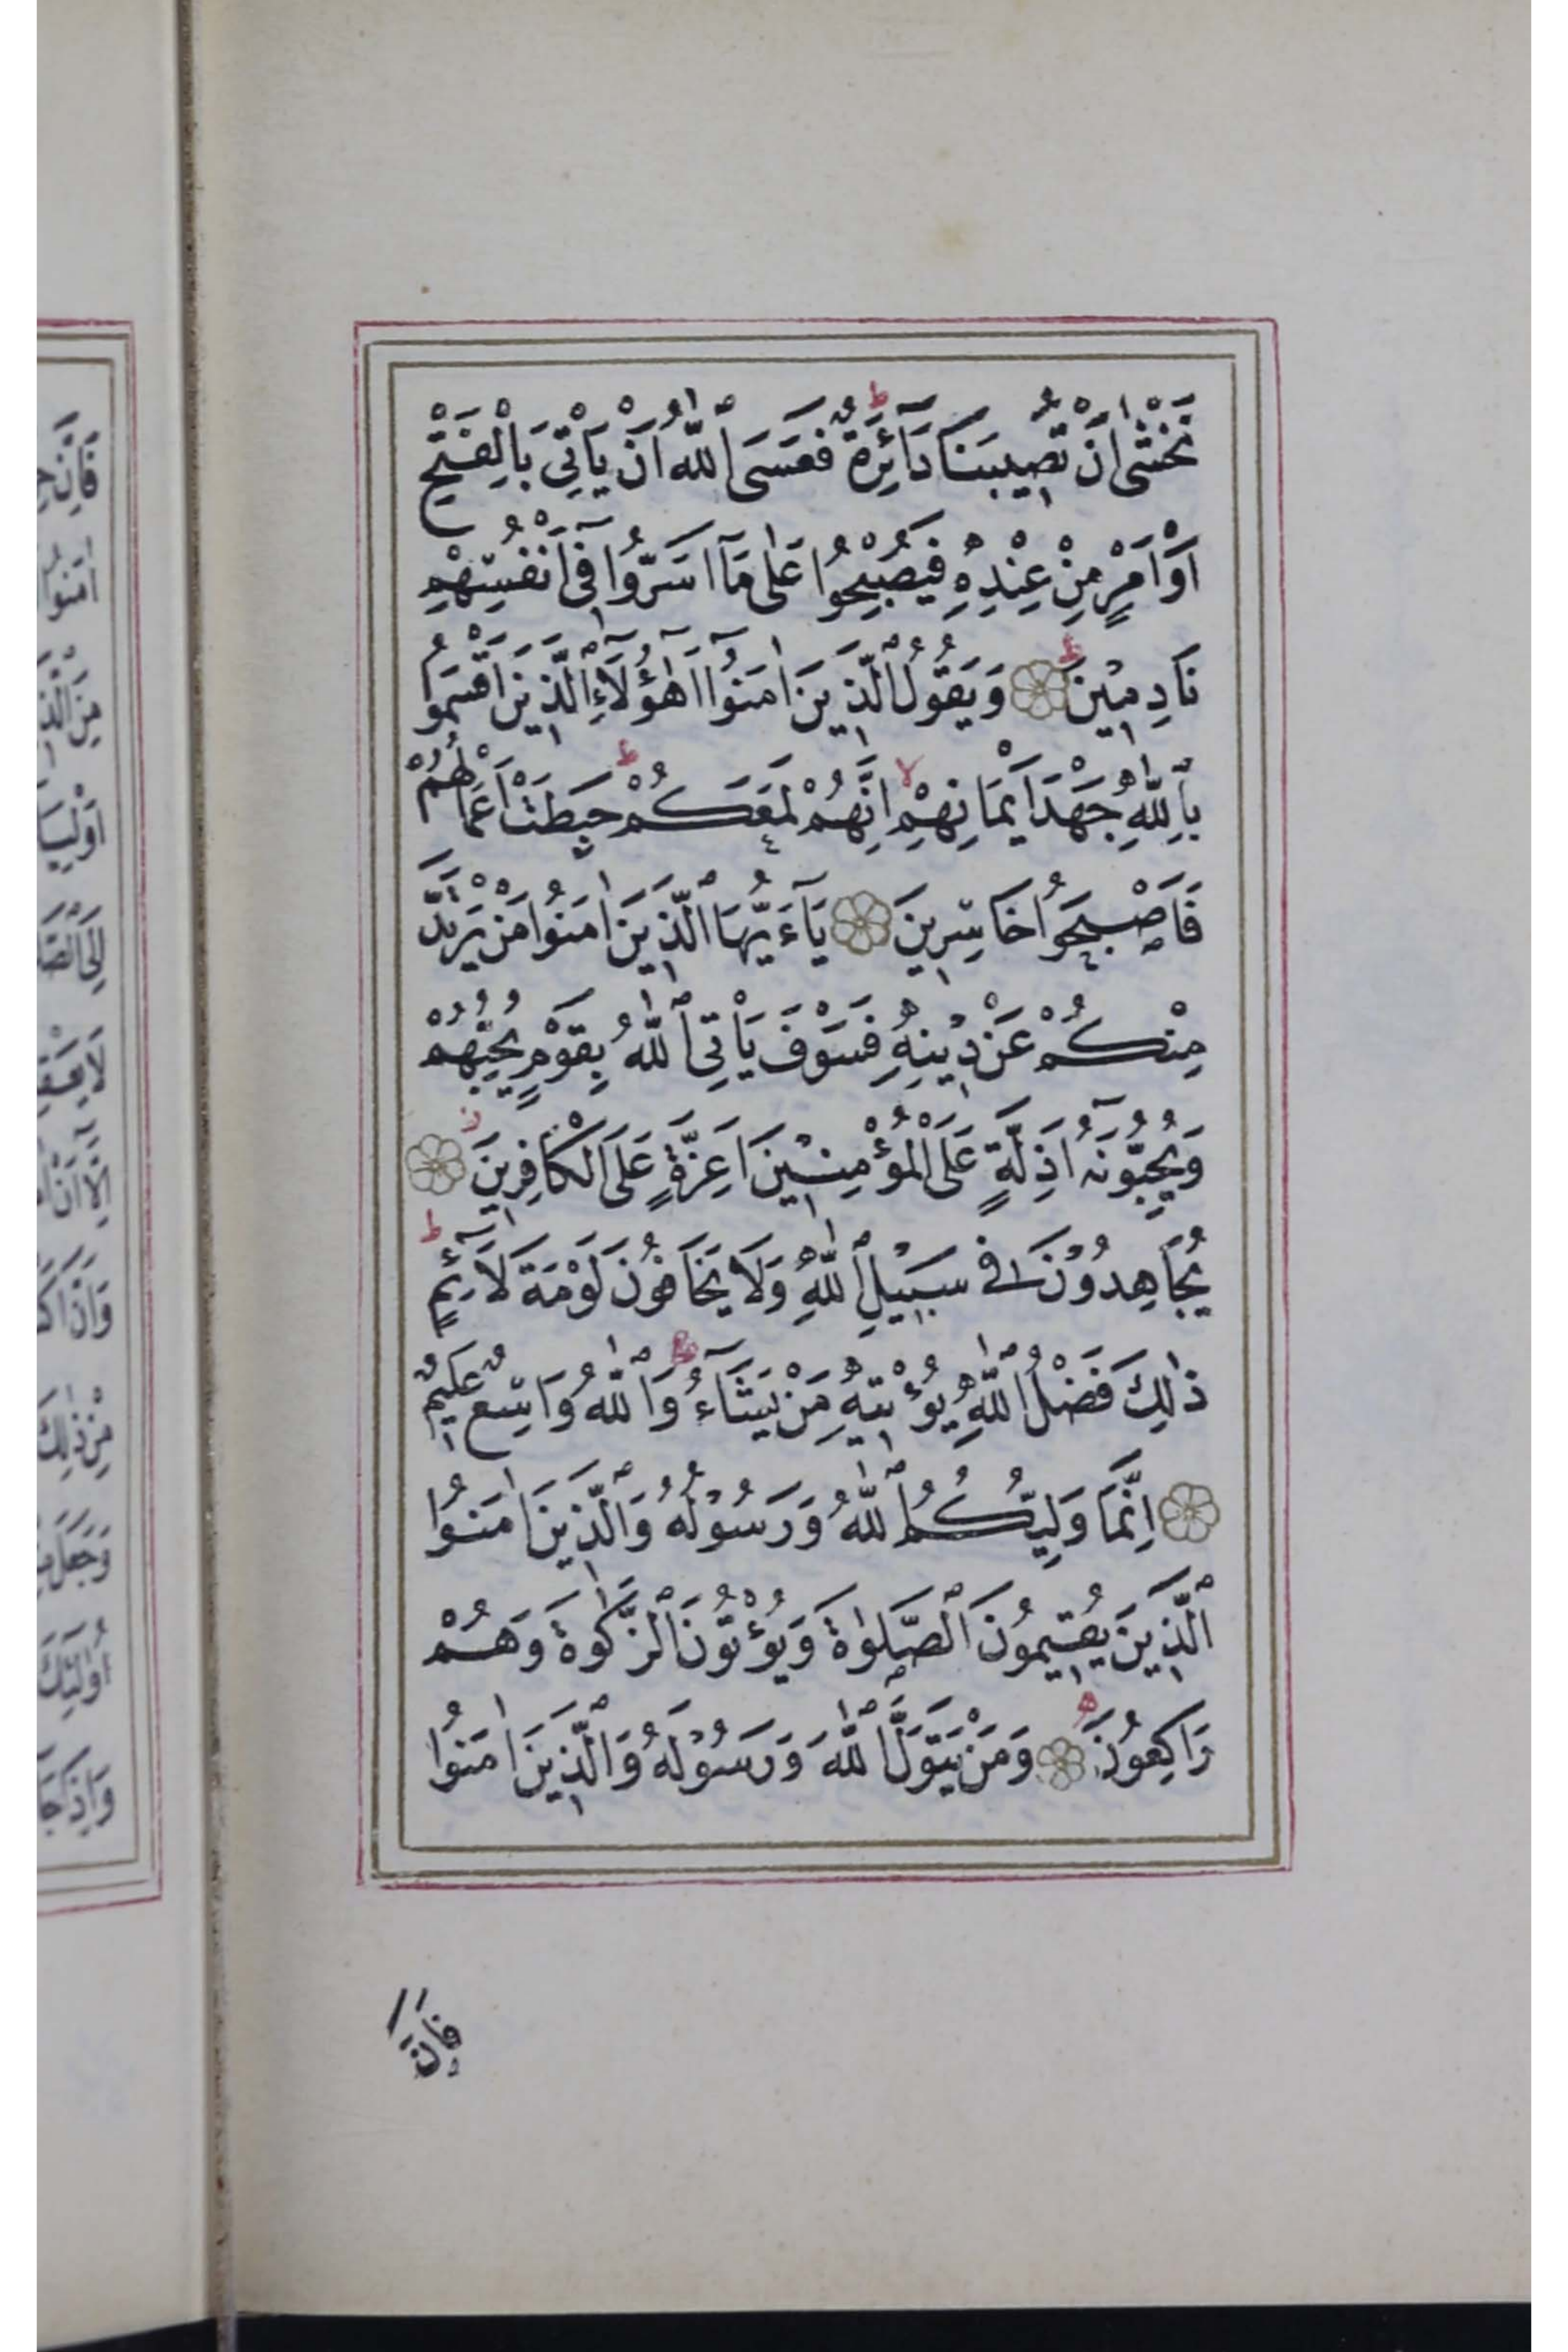 نَخْشٰى اَنْ تُصِيبَنَا دَآئِرَةٌ ط فَعَسَى اللّٰهُ اَنْ يَاْتِىَ بِالْفَتْحِ
اَوْ اَمْرٍ مِنْ عِنْدِهِ فَيُصْبِحُوا عَلٰى مَآ اَسَرُّوا فِىٓ اَنْفُسِهِمْ
نَادِمِينَ ط وَيَقُولُ الَّذِينَ اٰمَنُوٓا اَهٰٓؤُلَآءِ الَّذِينَ اَقْسَمُوا
بِاللّٰهِ جَهْدَ اَيْمَانِهِمْ لا اِنَّهُمْ لَمَعَكُمْ ط حَبِطَتْ اَعْمَالُهُمْ
فَاَصْبَحُوا خَاسِرِينَ يَآءَيُّهَا الَّذِينَ اٰمَنُوا مَنْ يَرْتَدَّ
مِنْكُمْ عَنْ دِينِهِ فَسَوْفَ يَاْتِى اللّٰهُ بِقَوْمٍ يُحِبُّهُمْ
وَيُحِبُّونَهُ اَذِلَّةٍ عَلَى الْمُؤْمِنِينَ اَعِزَّةٍ عَلَى الْكَافِرِينَ ز
يُجَاهِدُونَ فِى سَبِيلِ اللّٰهِ وَلَا يَخَافُونَ لَوْمَةَ لَآئِمٍ ط
ذٰلِكَ فَضْلُ اللّٰهِ يُؤْتِيهِ مَنْ يَشَآءُ ط وَاللّٰهُ وَاسِعٌ عَلِيمٌ
اِنَّمَا وَلِيُّكُمُ اللّٰهُ وَرَسُولُهُ وَالَّذِينَ اٰمَنُوا
الَّذِينَ يُقِيمُونَ الصَّلٰوةَ وَيُؤْتُونَ الزَّكٰوةَ وَهُمْ
رَاكِعُونَ وَمَنْ يَتَوَلَّ اللّٰهَ وَرَسُولَهُ وَالَّذِينَ اٰمَنُوا
فَاِنَّ